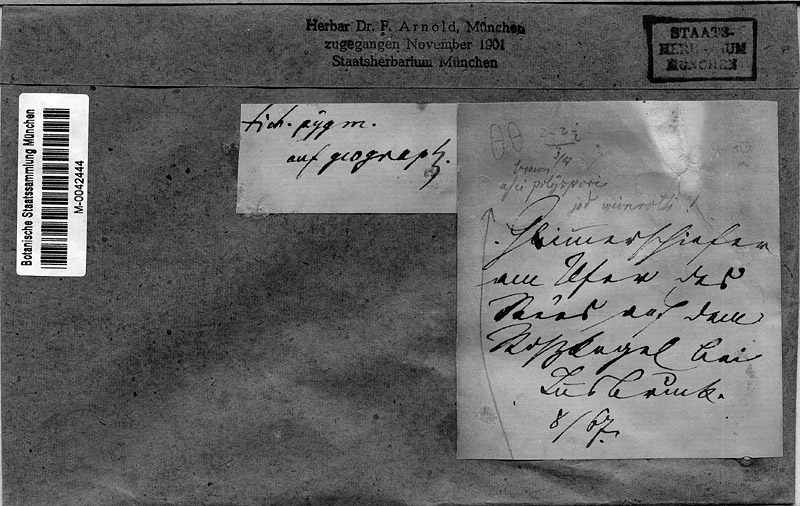 Herbar Dr. F. Arnold, München
zugegangen November 1901
Staatsherbarium München
STAATS-
HERBARIUM
MÜNCHEN
Botanische Staatssammlung München
M-0042444
tich. pygm.
auf geograph.
2-2½
3/4
braun
asci polyspori
jod weinroth!
Glimmerschiefer
am Ufer des
Sees auf dem
Roszkogel bei
Insbruck.
8/67.